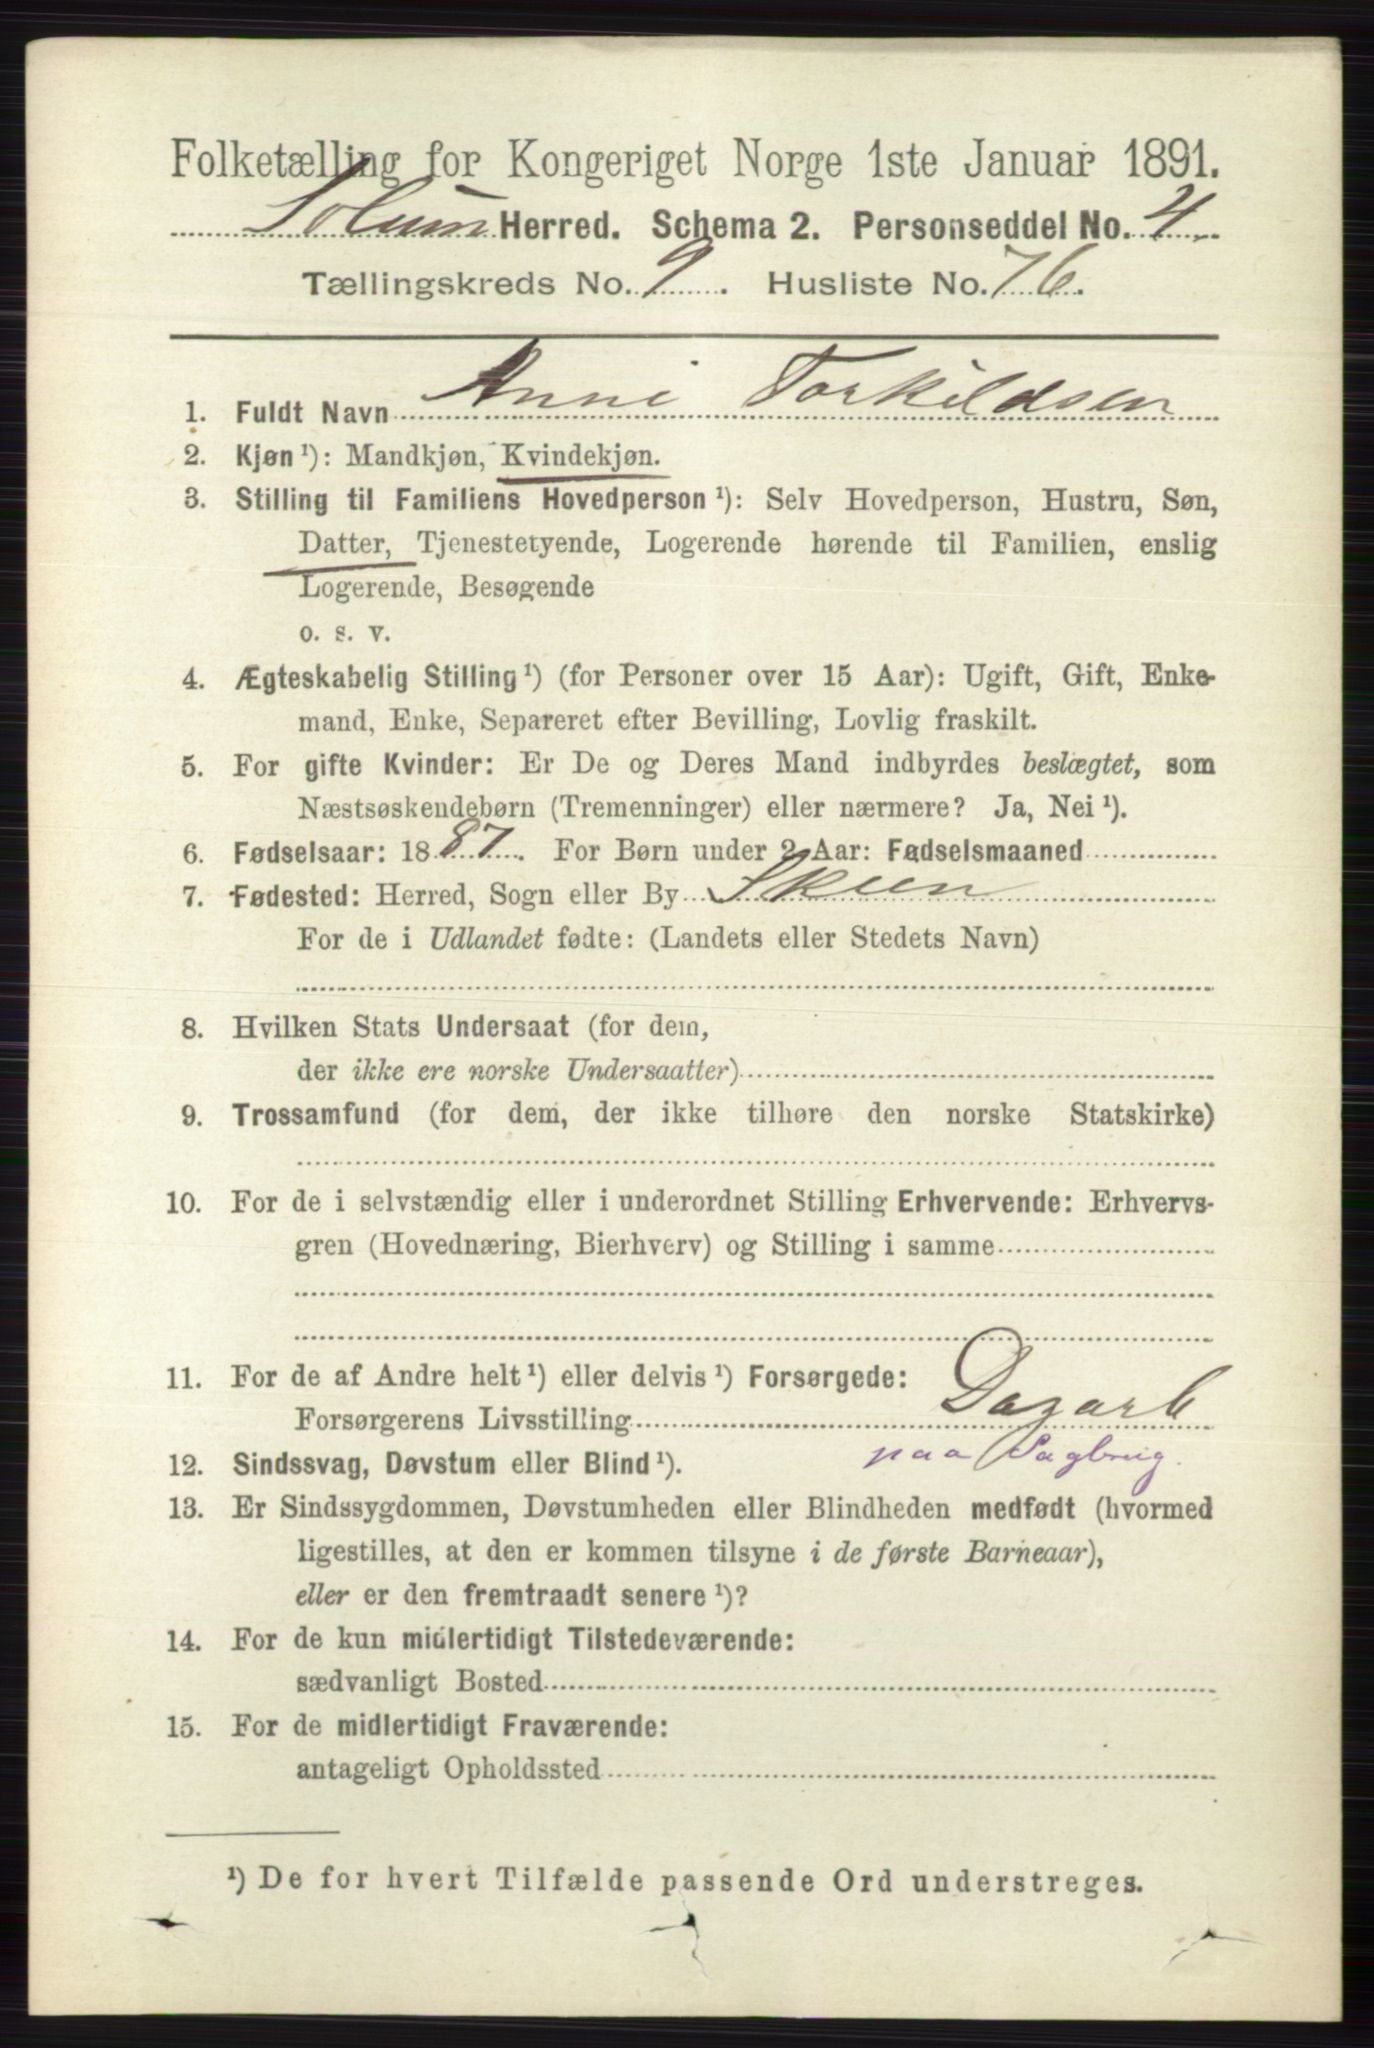 Folketælling for Kongeriget Norge 1ste Januar 1891.
Solum Herred. Schema 2. Personseddel No. 4
Tællingskreds No. 9. Husliste No. 76.
1. Fuldt Navn Anne Torkildsen
2. Kjøn ¹): Mandkjøn, Kvindekjøn.
3. Stilling til Familiens Hovedperson ¹): Selv Hovedperson, Hustru, Søn,
Datter, Tjenestetyende, Logerende hørende til Familien, enslig
Logerende, Besøgende
o. s. v.
4. Ægteskabelig Stilling ¹) (for Personer over 15 Aar): Ugift, Gift, Enke-
mand, Enke, Separeret efter Bevilling, Lovlig fraskilt.
5. For gifte Kvinder: Er De og Deres Mand indbyrdes beslægtet, som
Næstsøskendebørn (Tremenninger) eller nærmere? Ja, Nei ¹).
6. Fødselsaar: 1887. For Børn under 2 Aar: Fødselsmaaned
7. Fødested: Herred, Sogn eller By Skien
For de i Udlandet fødte: (Landets eller Stedets Navn)
8. Hvilken Stats Undersaat (for dem,
der ikke ere norske Undersaatter)
9. Trossamfund (for dem, der ikke tilhøre den norske Statskirke)
10. For de i selvstændig eller i underordnet Stilling Erhvervende: Erhvervs-
gren (Hovednæring, Bierhverv) og Stilling i samme
11. For de af Andre helt ¹) eller delvis ¹) Forsørgede:
Forsørgerens Livsstilling Dagarb
paa Sagbrug.
12. Sindssvag, Døvstum eller Blind ¹).
13. Er Sindssygdommen, Døvstumheden eller Blindheden medfødt (hvormed
ligestilles, at den er kommen tilsyne i de første Barneaar),
eller er den fremtraadt senere ¹)?
14. For de kun midlertidigt Tilstedeværende:
sædvanligt Bosted
15. For de midlertidigt Fraværende:
antageligt Opholdssted
¹) De for hvert Tilfælde passende Ord understreges.